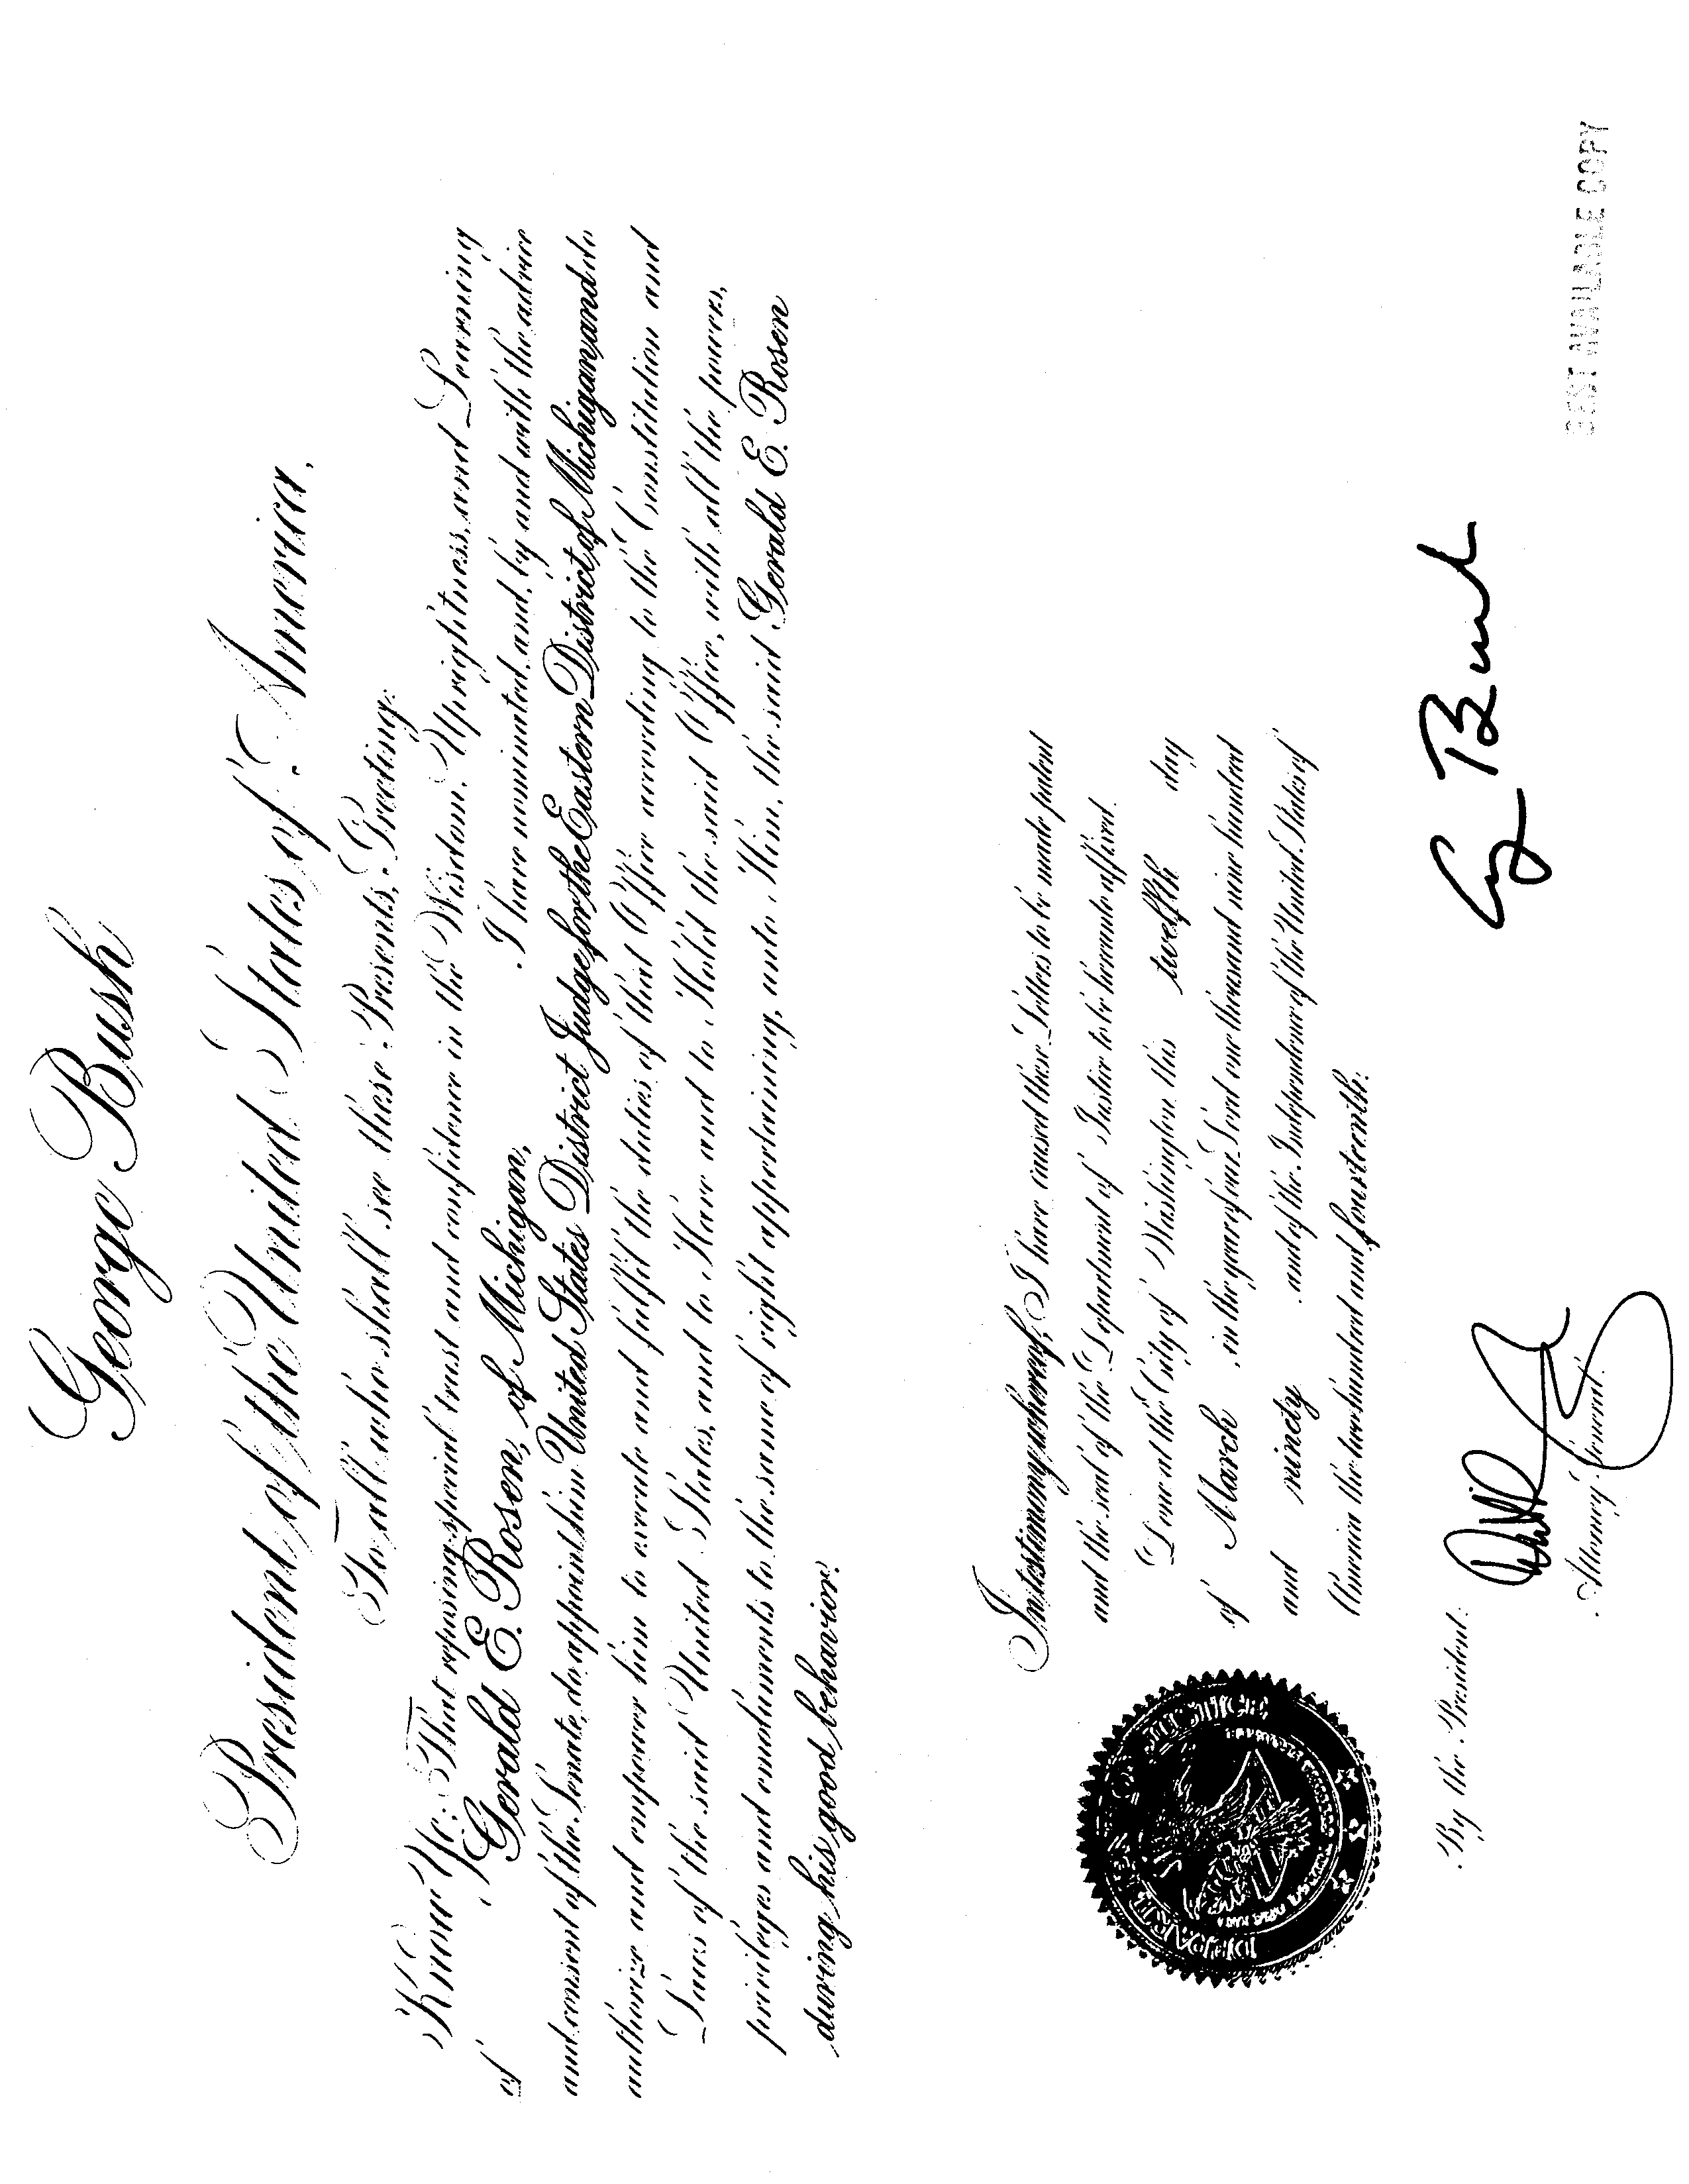 George Bush
President of the United States of America,
To all who shall see these Presents, Greeting:
Know Ye: That reposing special trust and confidence in the Wisdom, Uprightness, and Learning
of Gerald E. Rosen, of Michigan, I have nominated, and, by and with the advice
and consent of the Senate, do appoint him United States District Judge for the Eastern District of Michigan and do
authorize and empower him to execute and fulfil the duties of that Office according to the Constitution and
Laws of the said United States, and to Have and to Hold the said Office, with all the powers,
privileges and emoluments to the same of right appertaining, unto Him, the said Gerald E. Rosen
during his good behavior.
In testimony whereof, I have caused these Letters to be made patent
and the seal of the Department of Justice to be hereunto affixed.
Done at the City of Washington this twelfth day
of March, in the year of our Lord one thousand nine hundred
and ninety, and of the Independence of the United States of
America the two hundred and fourteenth.
DEPARTMENT OF JUSTICE
G Bush
By the President:
Attorney General.
BEST AVAILABLE COPY